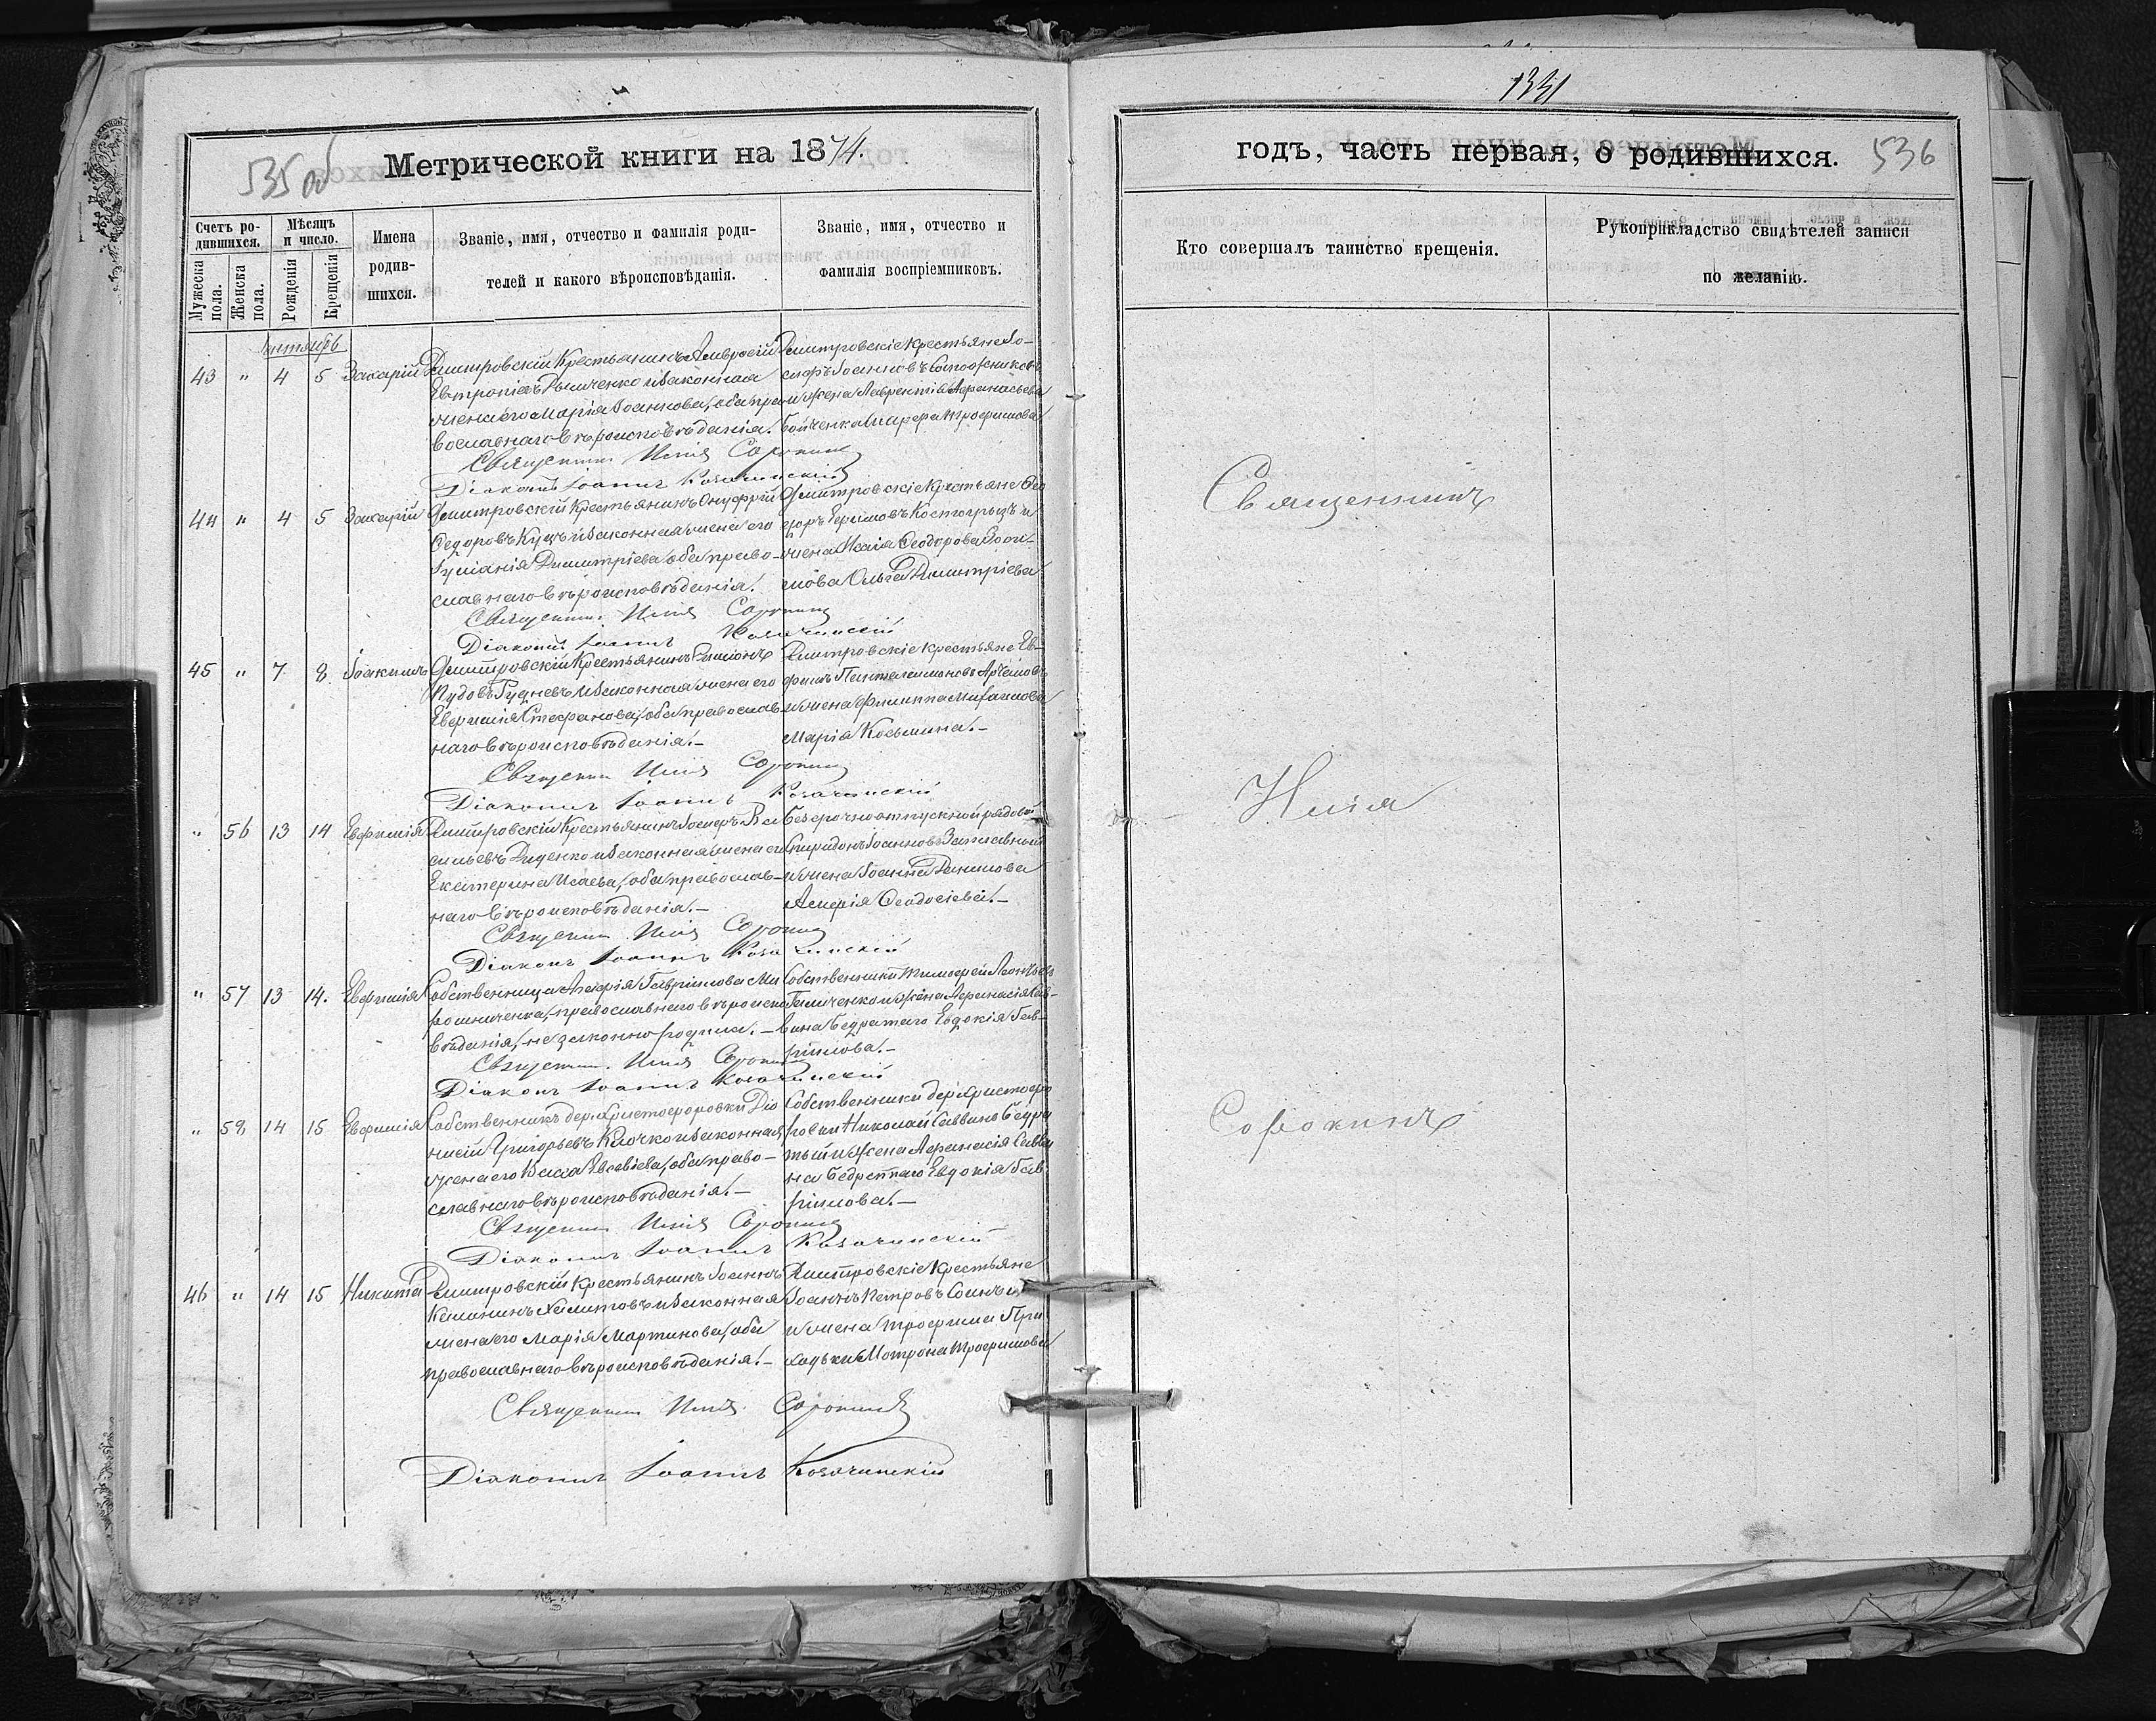 535 об
Метрической книги на 1874.
Счетъ родившихся.
Мужеска пола.
Женска пола.
Мѣсяцъ и число.
Рожденія
Крещенія
Имена родившихся.
Званіе, имя, отчество и фамилія родителей и какого вѣроисповѣданія.
Званіе, имя, отчество и фамилія воспріемниковъ.
43 " 4 5 Захарій
Димитровскій Крестьянинъ Амвросій
законная
жена его Марія Іоаннова, оба православнаго вѣроисповѣданія.
Димитровскіе крестьяне Іосифъ Іоанновъ
и жена Лаврентія
Бойченка Марфа Трофимова
Священникъ Илія Сорокинъ
Діаконъ Іоаннъ Козачинскій
44 " 4 5 Захарій
Димитровскій Крестьянинъ Онуфрій
Федоровъ Куцъ и законная жена его
Іуліанія Димитріева, оба православнаго вѣроисповѣданія.
Димитровскіе крестьяне
Ефимовъ Костогрызъ и
жена Исаія Феодорова
Ольга Димитріева
Священникъ Илія Сорокинъ
Діаконъ Іоаннъ Козачинскій
45 " 7 8 Іоакимъ
Димитровскій Крестьянинъ
Рудневъ и законная жена его
Евфимія Стефанова, оба православнаго вѣроисповѣданія.–
Димитровскіе крестьяне Евфимъ Пантелеимоновъ
и жена Филиппа
Марія Косьмина.–
Священникъ Илія Сорокинъ
Діаконъ Іоаннъ Козачинскій
" 56 13 14 Евфимія
Димитровскій Крестьянинъ Іосифъ Васильевъ Диденко и законная жена его
Екатерина Исаева, оба православнаго вѣроисповѣданія.–
Безсрочноотпускной рядовой
Спиридонъ Іоанновъ
и жена Іоанна Данилова
Феодосіева.–
Священникъ Илія Сорокинъ
Діаконъ Іоаннъ Козачинскій
" 57 13 14. Евфимія
Собственница Марія Гавріилова Мирошниченка, православнаго вѣроисповѣданія, незаконно родила.–
Собственники Тимофей Леонтьевъ
и жена Афанасія Саввина Бедратаго Евдокія Гавріилова.–
Священникъ Илія Сорокинъ
Діаконъ Іоаннъ Козачинскій
" 58 14 15 Евфимія
Собственникъ дер. Христофоровки Діонисій Григорьевъ Клочко и законная
жена его Васса Евсевіева, оба православнаго вѣроисповѣданія.–
Собственники дер. Христофоровки Николай Саввинъ Бедратый и жена Афанасія Саввина Бедратаго Евдокія Гавріилова.–
Священникъ Илія Сорокинъ
Діаконъ Іоаннъ Козачинскій
46 " 14 15 Никита
Димитровскій Крестьянинъ Іоаннъ
и законная
жена его Марія Мартинова, оба
православнаго вѣроисповѣданія.–
Димитровскіе Крестьяне
Іоаннъ Петровъ
и жена Трофима Приходьки Мотрона Трофимова
Священникъ Илія Сорокинъ
Діаконъ Іоаннъ Козачинскій
1331
годъ, часть первая, о родившихся.
536
Кто совершалъ таинство крещенія.
Рукоприкладство свидѣтелей записи
по желанію.
Священникъ
Илія
Сорокинъ